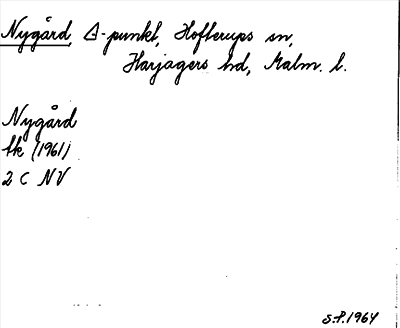 Nygård, Δ-punkt, Hofterups sn,
Harjagers hd, Malm. l.
Nygård
tk (1961)
2 C NV
S.P. 1964